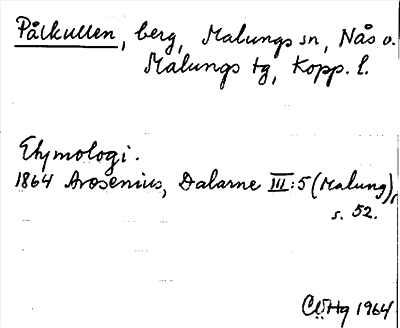 Pålkullen, berg, Malungs sn, Nås o.
Malungs tg, Kopp. l.
Etymologi.
1864 Arosenius, Dalarne III:5 (Malung),
s. 52.
CÖHg 1964